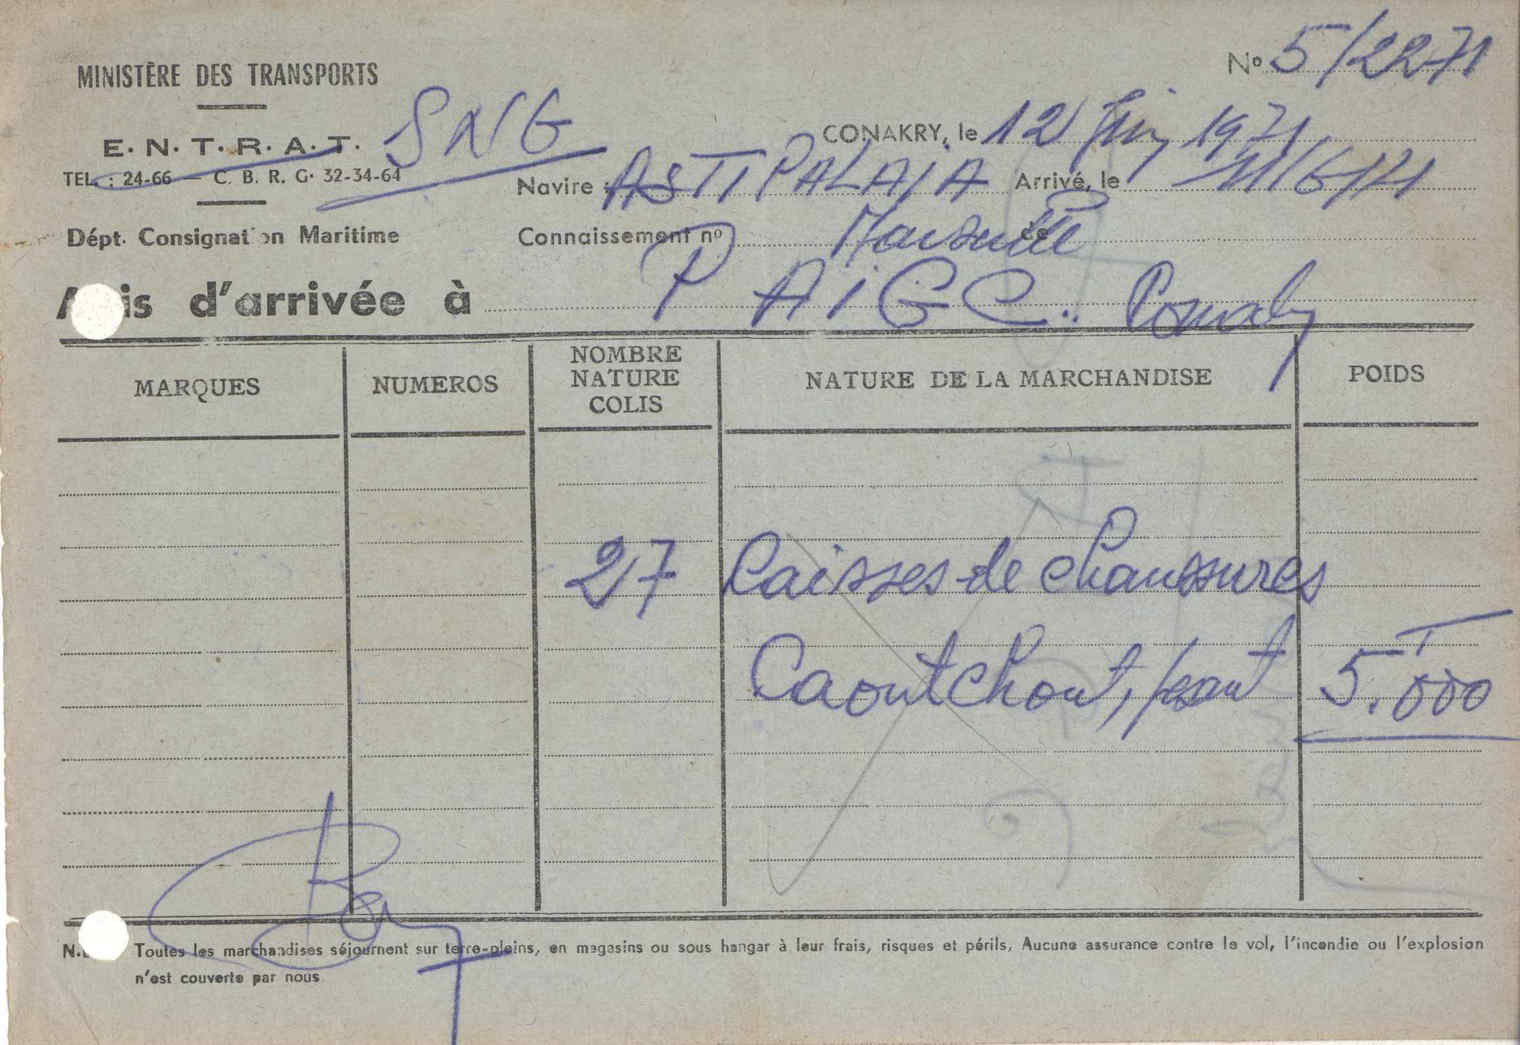 MINISTÈRE DES TRANSPORTS
E. N. T. R. A. T.
SNG
TEL. : 24-66 — C. B. R. G. 32-34-64
Dépt. Consignation Maritime
N° 5/2271
CONAKRY, le 12 Juin 1971
Navire : ASTIPALAIA Arrivé, le 11/6/71
Connaissement n° de Marseille
Avis d'arrivée à P AIGC. Conakry
MARQUES NUMEROS NOMBRE NATURE COLIS NATURE DE LA MARCHANDISE POIDS
27 Caisses de chaussures
Caoutchout, pesant 5.T000
N.B. Toutes les marchandises séjournent sur terre-pleins, en magasins ou sous hangar à leur frais, risques et périls, Aucune assurance contre le vol, l'incendie ou l'explosion
n'est couverte par nous